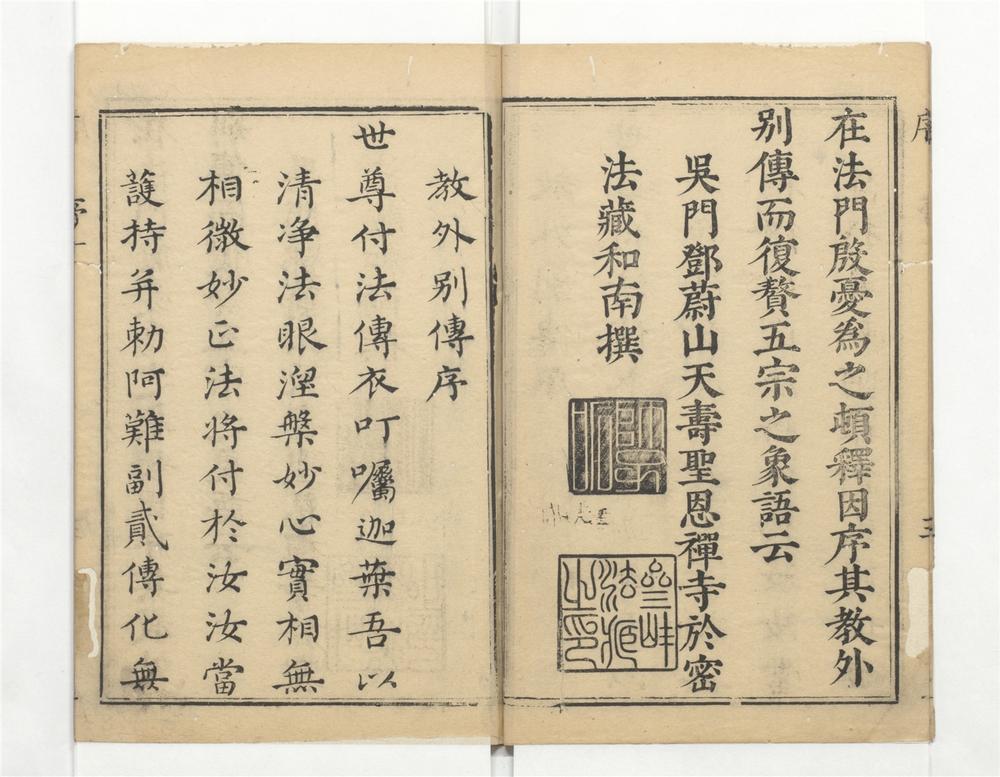 在法門殷憂為之頓釋因序其教外
別傳而復贅五宗之象語云
吳門鄧蔚山天壽聖恩禪寺於密
法藏和南撰
教外別傳序
世尊付法傳衣叮囑迦葉吾以
清淨法眼涅槃妙心實相無
相微妙正法將付於汝汝當
護持并勅阿難副貳傳化無